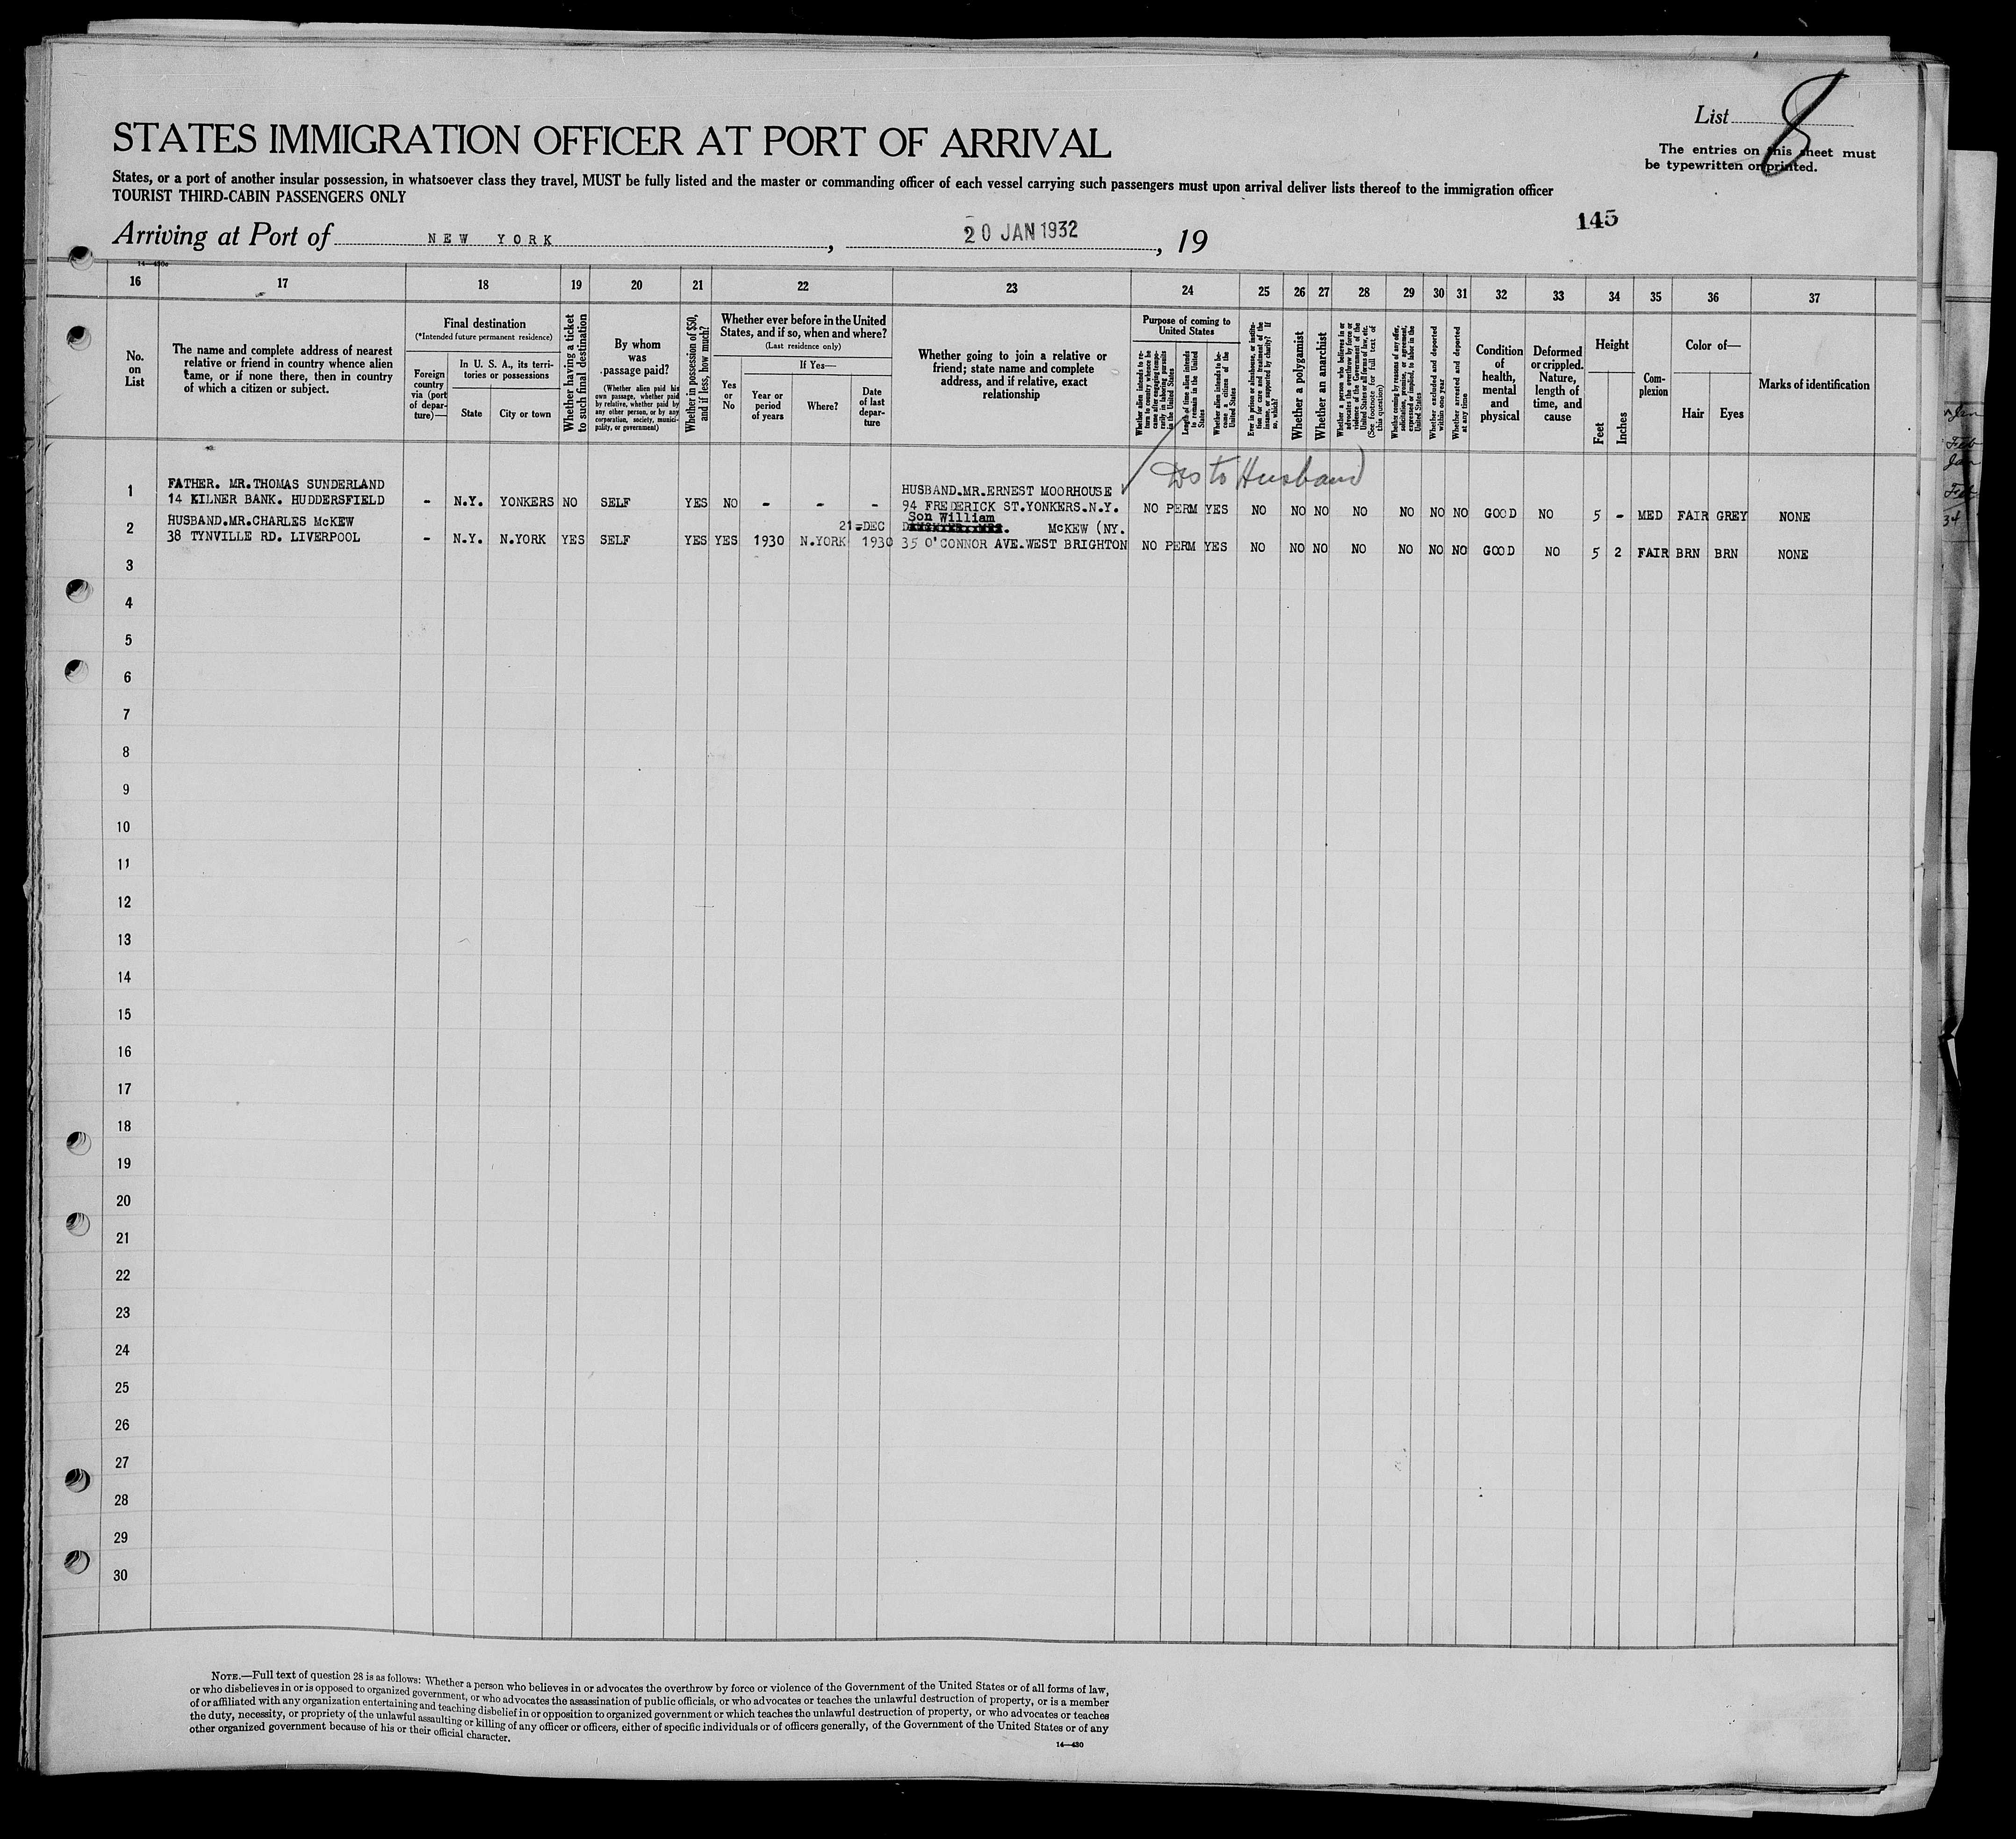 List 8
The entries on this sheet must
be typewritten or printed.
STATES IMMIGRATION OFFICER AT PORT OF ARRIVAL
States, or a port of another insular possession, in whatsoever class they travel, MUST be fully listed and the master or commanding officer of each vessel carrying such passengers must upon arrival deliver lists thereof to the immigration officer
TOURIST THIRD-CABIN PASSENGERS ONLY
145
Arriving at Port of NEW YORK, 20 JAN 1932, 19
16 17 18 19 20 21 22 23 24 25 26 27 28 29 30 31 32 33 34 35 36 37
No. on List
The name and complete address of nearest relative or friend in country whence alien came, or if none there, then in country of which a citizen or subject.
Final destination
(*Intended future permanent residence)
Foreign country via (port of departure)—
In U. S. A., its territories or possessions
State
City or town
Whether having a ticket to such final destination
By whom was passage paid?
(Whether alien paid his own passage, whether paid by relative, whether paid by any other person, or by any corporation, society, municipality, or government)
Whether in possession of $50, and if less, how much?
Whether ever before in the United States, and if so, when and where?
(Last residence only)
Yes or No
If Yes—
Year or period of years
Where?
Date of last departure
Whether going to join a relative or friend; state name and complete address, and if relative, exact relationship
Purpose of coming to United States
Whether alien intends to return to country whence he came after engaging temporarily in laboring pursuits in the United States
Length of time alien intends to remain in the United States
Whether alien intends to become a citizen of the United States
Ever in prison or almshouse, or institution for care and treatment of the insane, or supported by charity? If so, which?
Whether a polygamist
Whether an anarchist
Whether a person who believes in or advocates the overthrow by force or violence of the Government of the United States or all forms of law, etc. (See footnote for full text of this question)
Whether coming by reasons of any offer, solicitation, promise, or agreement, expressed or implied, to labor in the United States
Whether excluded and deported within one year
Whether arrested and deported at any time
Condition of health, mental and physical
Deformed or crippled. Nature, length of time, and cause
Height
Feet
Inches
Complexion
Color of—
Hair
Eyes
Marks of identification
to Husband
FATHER. MR.THOMAS SUNDERLAND HUSBAND.MR.ERNEST MOORHOUSE
1 14 KILNER BANK. HUDDERSFIELD - N.Y. YONKERS NO SELF YES NO - - - 94 FREDERICK ST.YONKERS.N.Y. NO PERM YES NO NO NO NO NO NO NO GOOD NO 5 - MED FAIR GREY NONE
Son William
2 HUSBAND.MR.CHARLES McKEW 21=DEC McKEW (NY.
38 TYNVILLE RD. LIVERPOOL - N.Y. N.YORK YES SELF YES YES 1930 N.YORK 1930 35 O'CONNOR AVE.WEST BRIGHTON NO PERM YES NO NO NO NO NO NO NO GOOD NO 5 2 FAIR BRN BRN NONE
3
4
5
6
7
8
9
10
11
12
13
14
15
16
17
18
19
20
21
22
23
24
25
26
27
28
29
30
NOTE.—Full text of question 28 is as follows: Whether a person who believes in or advocates the overthrow by force or violence of the Government of the United States or of all forms of law,
or who disbelieves in or is opposed to organized government, or who advocates the assassination of public officials, or who advocates or teaches the unlawful destruction of property, or is a member
of or affiliated with any organization entertaining and teaching disbelief in or opposition to organized government or which teaches the unlawful destruction of property, or who advocates or teaches
the duty, necessity, or propriety of the unlawful assaulting or killing of any officer or officers, either of specific individuals or of officers generally, of the Government of the United States or of any
other organized government because of his or their official character.
14—430